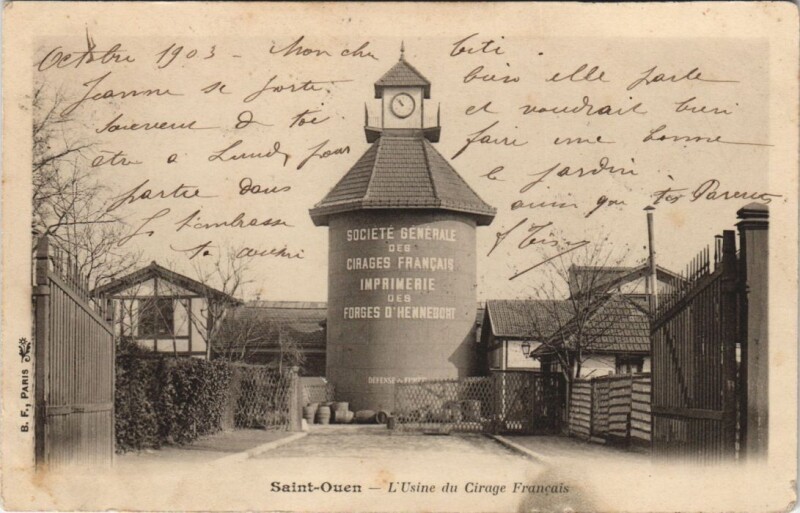 Octobre 1903 - Mon cher Titi.
Jeanne se porte bien elle parle
souvent de toi et voudrait bien
être à Lundi pour faire une bonne
partie dans le jardin.
Je t'embrasse ainsi que tes Parents
ta amie
SOCIÉTÉ GÉNÉRALE
DES
CIRAGES FRANÇAIS
IMPRIMERIE
DES
FORGES D'HENNEBONT
DÉFENSE
B. F., PARIS
Saint-Ouen — L'Usine du Cirage Français